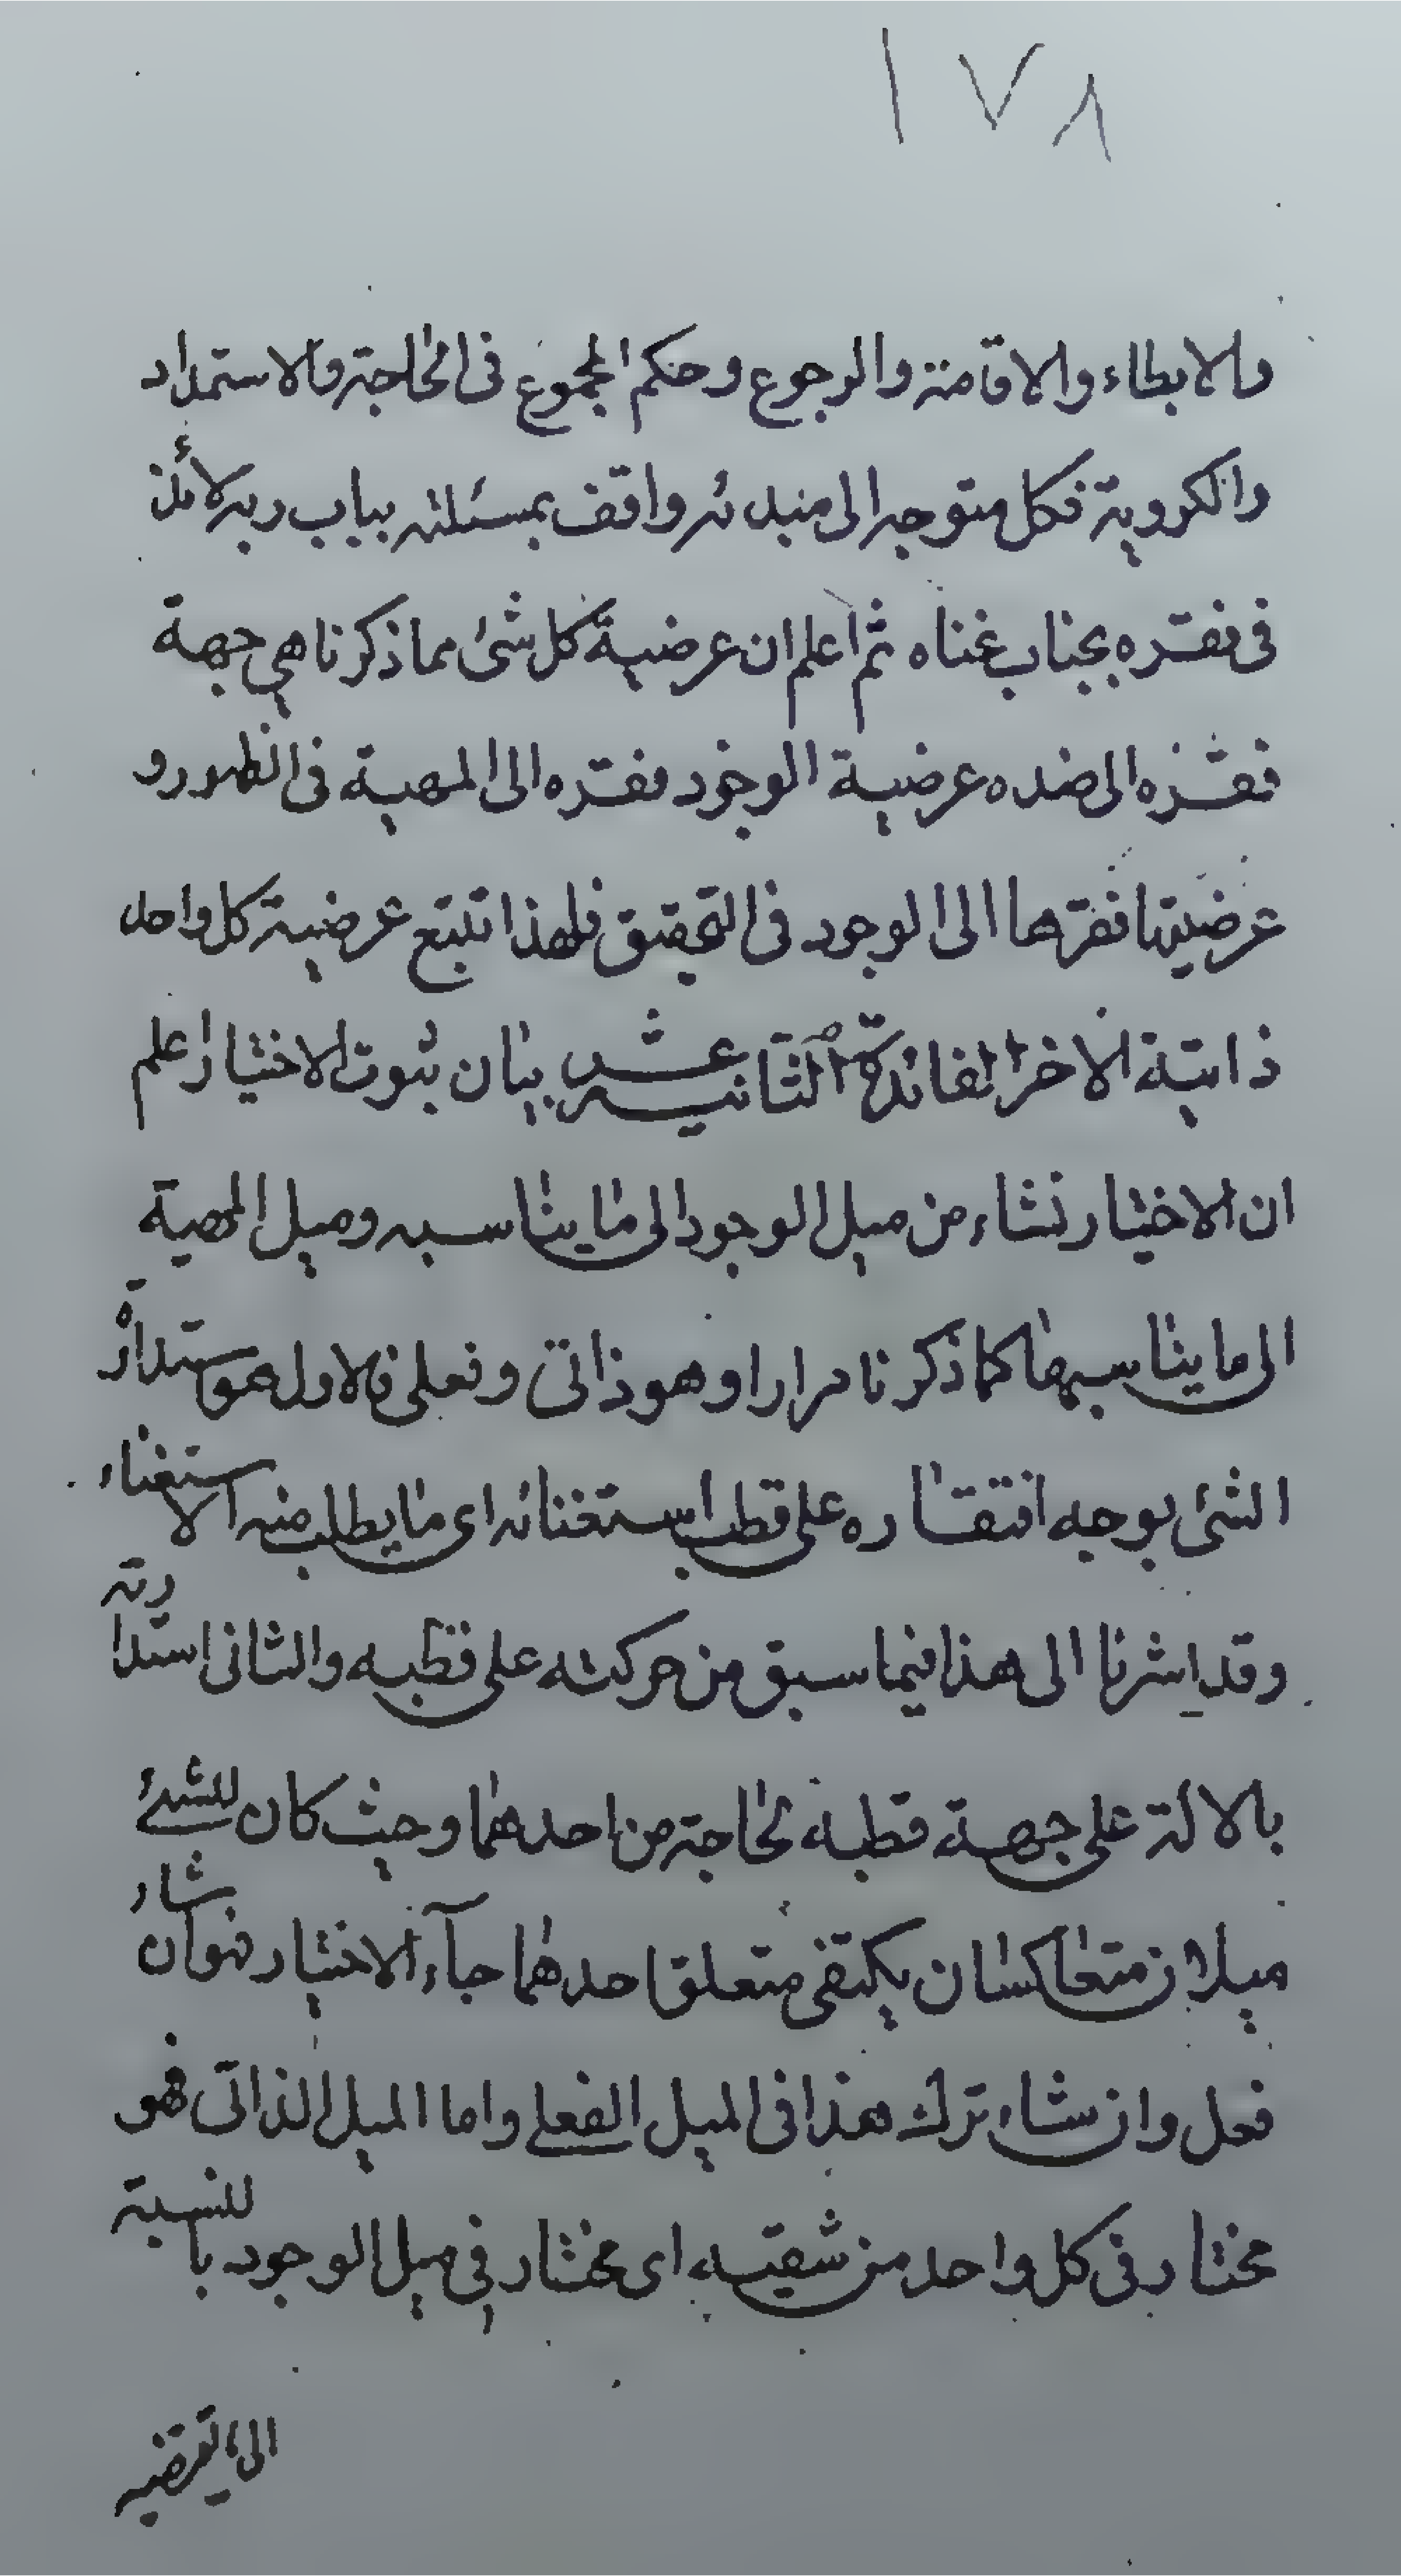 ١٧٨
والابطاء والاقامة والرجوع وحكم المجموع فى الحاجة والاستمداد
والكروية فكل متوجه الى مبدئه واقف بمسئلته بباب ربه لائذ
فى فقره بجناب غناه ثم اعلم ان عرضية كل شئ مما ذكرنا هي جهة
فقره الى ضده عرضية الوجود فقره الى المهية فى الظهور و
عرضيتها فقرها الى الوجود فى التحقيق فلهذا تتبع عرضية كل واحد
ذاتية الاخر الفائدة الثانية عشر بيان ثبوت الاختيار اعلم
ان الاختيار نشاء من ميل الوجود الى ما يناسبه وميل المهية
الى ما يناسبها كما ذكرنا مرارا وهو ذاتى وفعلى فالاول هو ستدارة
الشئ بوجه افتقاره على قطب استغنائه اى ما يطلب منه الاستغناء
وقد اشرنا الى هذا فيما سبق من حركته على قطبه والثانى استدارته
بالالة على جهة قطبه لحاجة من احدهما وحيث كان للشئ
ميلان متعاكسان يكتفى متعلق احدهما جآء الاختيار فهو ان شاء
فعل وان شاء ترك هذا فى الميل الفعلى واما الميل الذاتى فهو
مختار فى كل واحد من شقيه اى مختار فى ميل الوجود بالنسبة